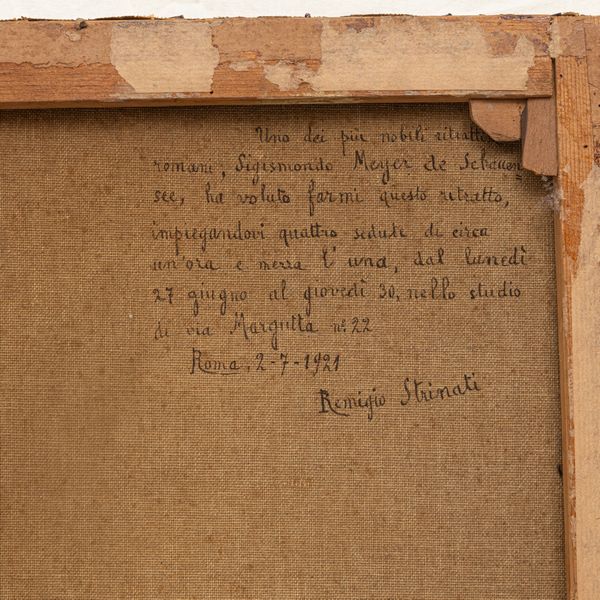 Uno dei più nobili ritratt
romani, Sigismondo Meyer de Schauen
see, ha voluto farmi questo ritratto,
impiegandovi quattro sedute di circa
un'ora e mezza l'una, dal lunedì
27 giugno al giovedì 30, nello studio
di via Margutta nº 22
Roma, 2-7-1921
Remigio Strinati